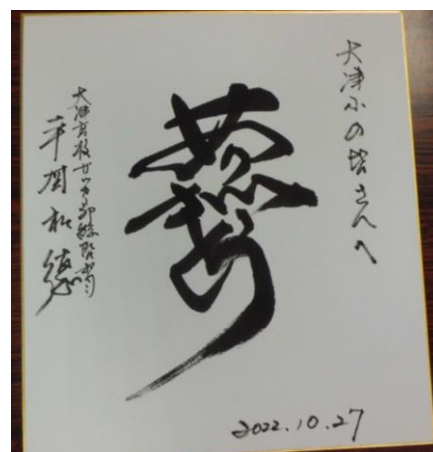 大津小の皆さんへ
大津高校サッカー部総監督
平岡和徳
2022.10.27